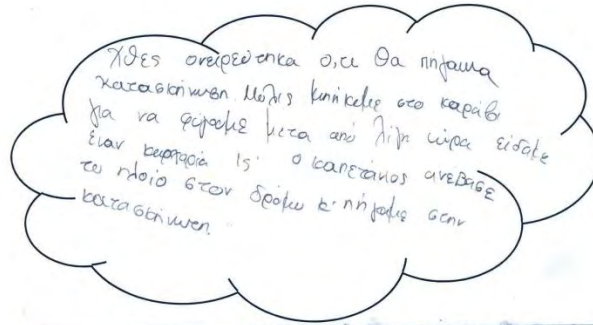 Χθες ονειρεύτηκα ό,τι θα πήγαινα
κατασκήνωση. Μόλις μπήκαμε στο καράβι
για να φύγουμε μετα από λίγη ώρα είδαμε
έναν καρχαρία ο καπετάνιος ανέβασε
το πλοίο στον δρόμο κ' πήγαμε στην
κατασκήνωση.